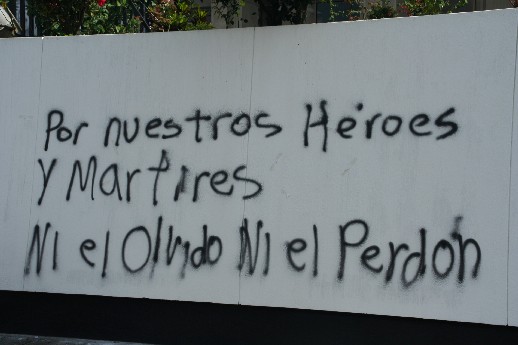 Por nuestros Héroes
Y Martires
Ni el Olvido Ni el Perdón